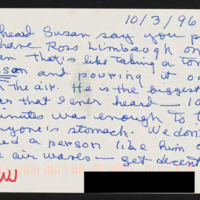 10/3/96
head Susan say you p
have Ross Limbaugh on
n that's like taking a ton
sson and pouring it o
n the air. He is the biggest
er that I ever heard — 10
inutes was enough to t
yone's stomach. We don't
ed a person like him o
e air waves — get decent